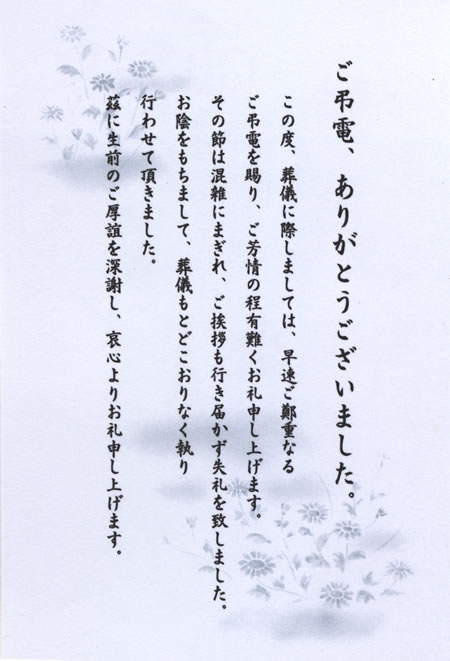 ご弔電、ありがとうございました。
この度、葬儀に際しましては、早速ご鄭重なる
ご弔電を賜り、ご芳情の程有難くお礼申し上げます。
その節は混雑にまぎれ、ご挨拶も行き届かず失礼を致しました。
お陰をもちまして、葬儀もとどこおりなく執り
行わせて頂きました。
茲に生前のご厚誼を深謝し、哀心よりお礼申し上げます。